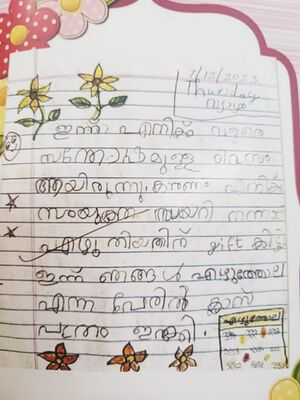 7/12/2023
Thursday
വ്യാഴം
ഇന്ന് എനിക്ക് വളരെ
സന്തോഷമുള്ള ദിവസം
ആയിരുന്നു. കാരണം എനിക്ക്
സംയുക്ത ഡയറി നന്നായി
എഴുതിയതിന് gift കിട്ടി
ഇന്ന് ഞങ്ങൾ എഴുത്തോല
എന്ന പേരിൽ ക്ലാസ്
പത്രം ഇറക്കി.
എഴുത്തോല